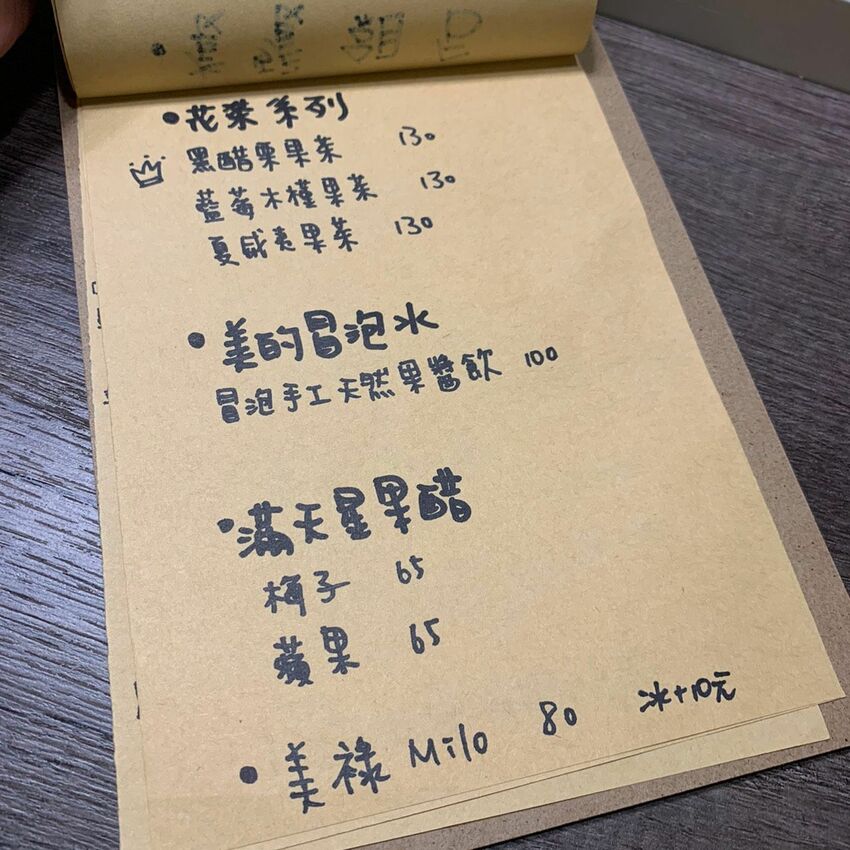 • 花菓系列
黑醋栗果茶 130
藍莓木槿果茶 130
夏威夷果茶 130
• 美的冒泡水
冒泡手工天然果醬飲 100
• 滿天星果醋
梅子 65
蘋果 65
• 美祿 Milo 80 冰+10元